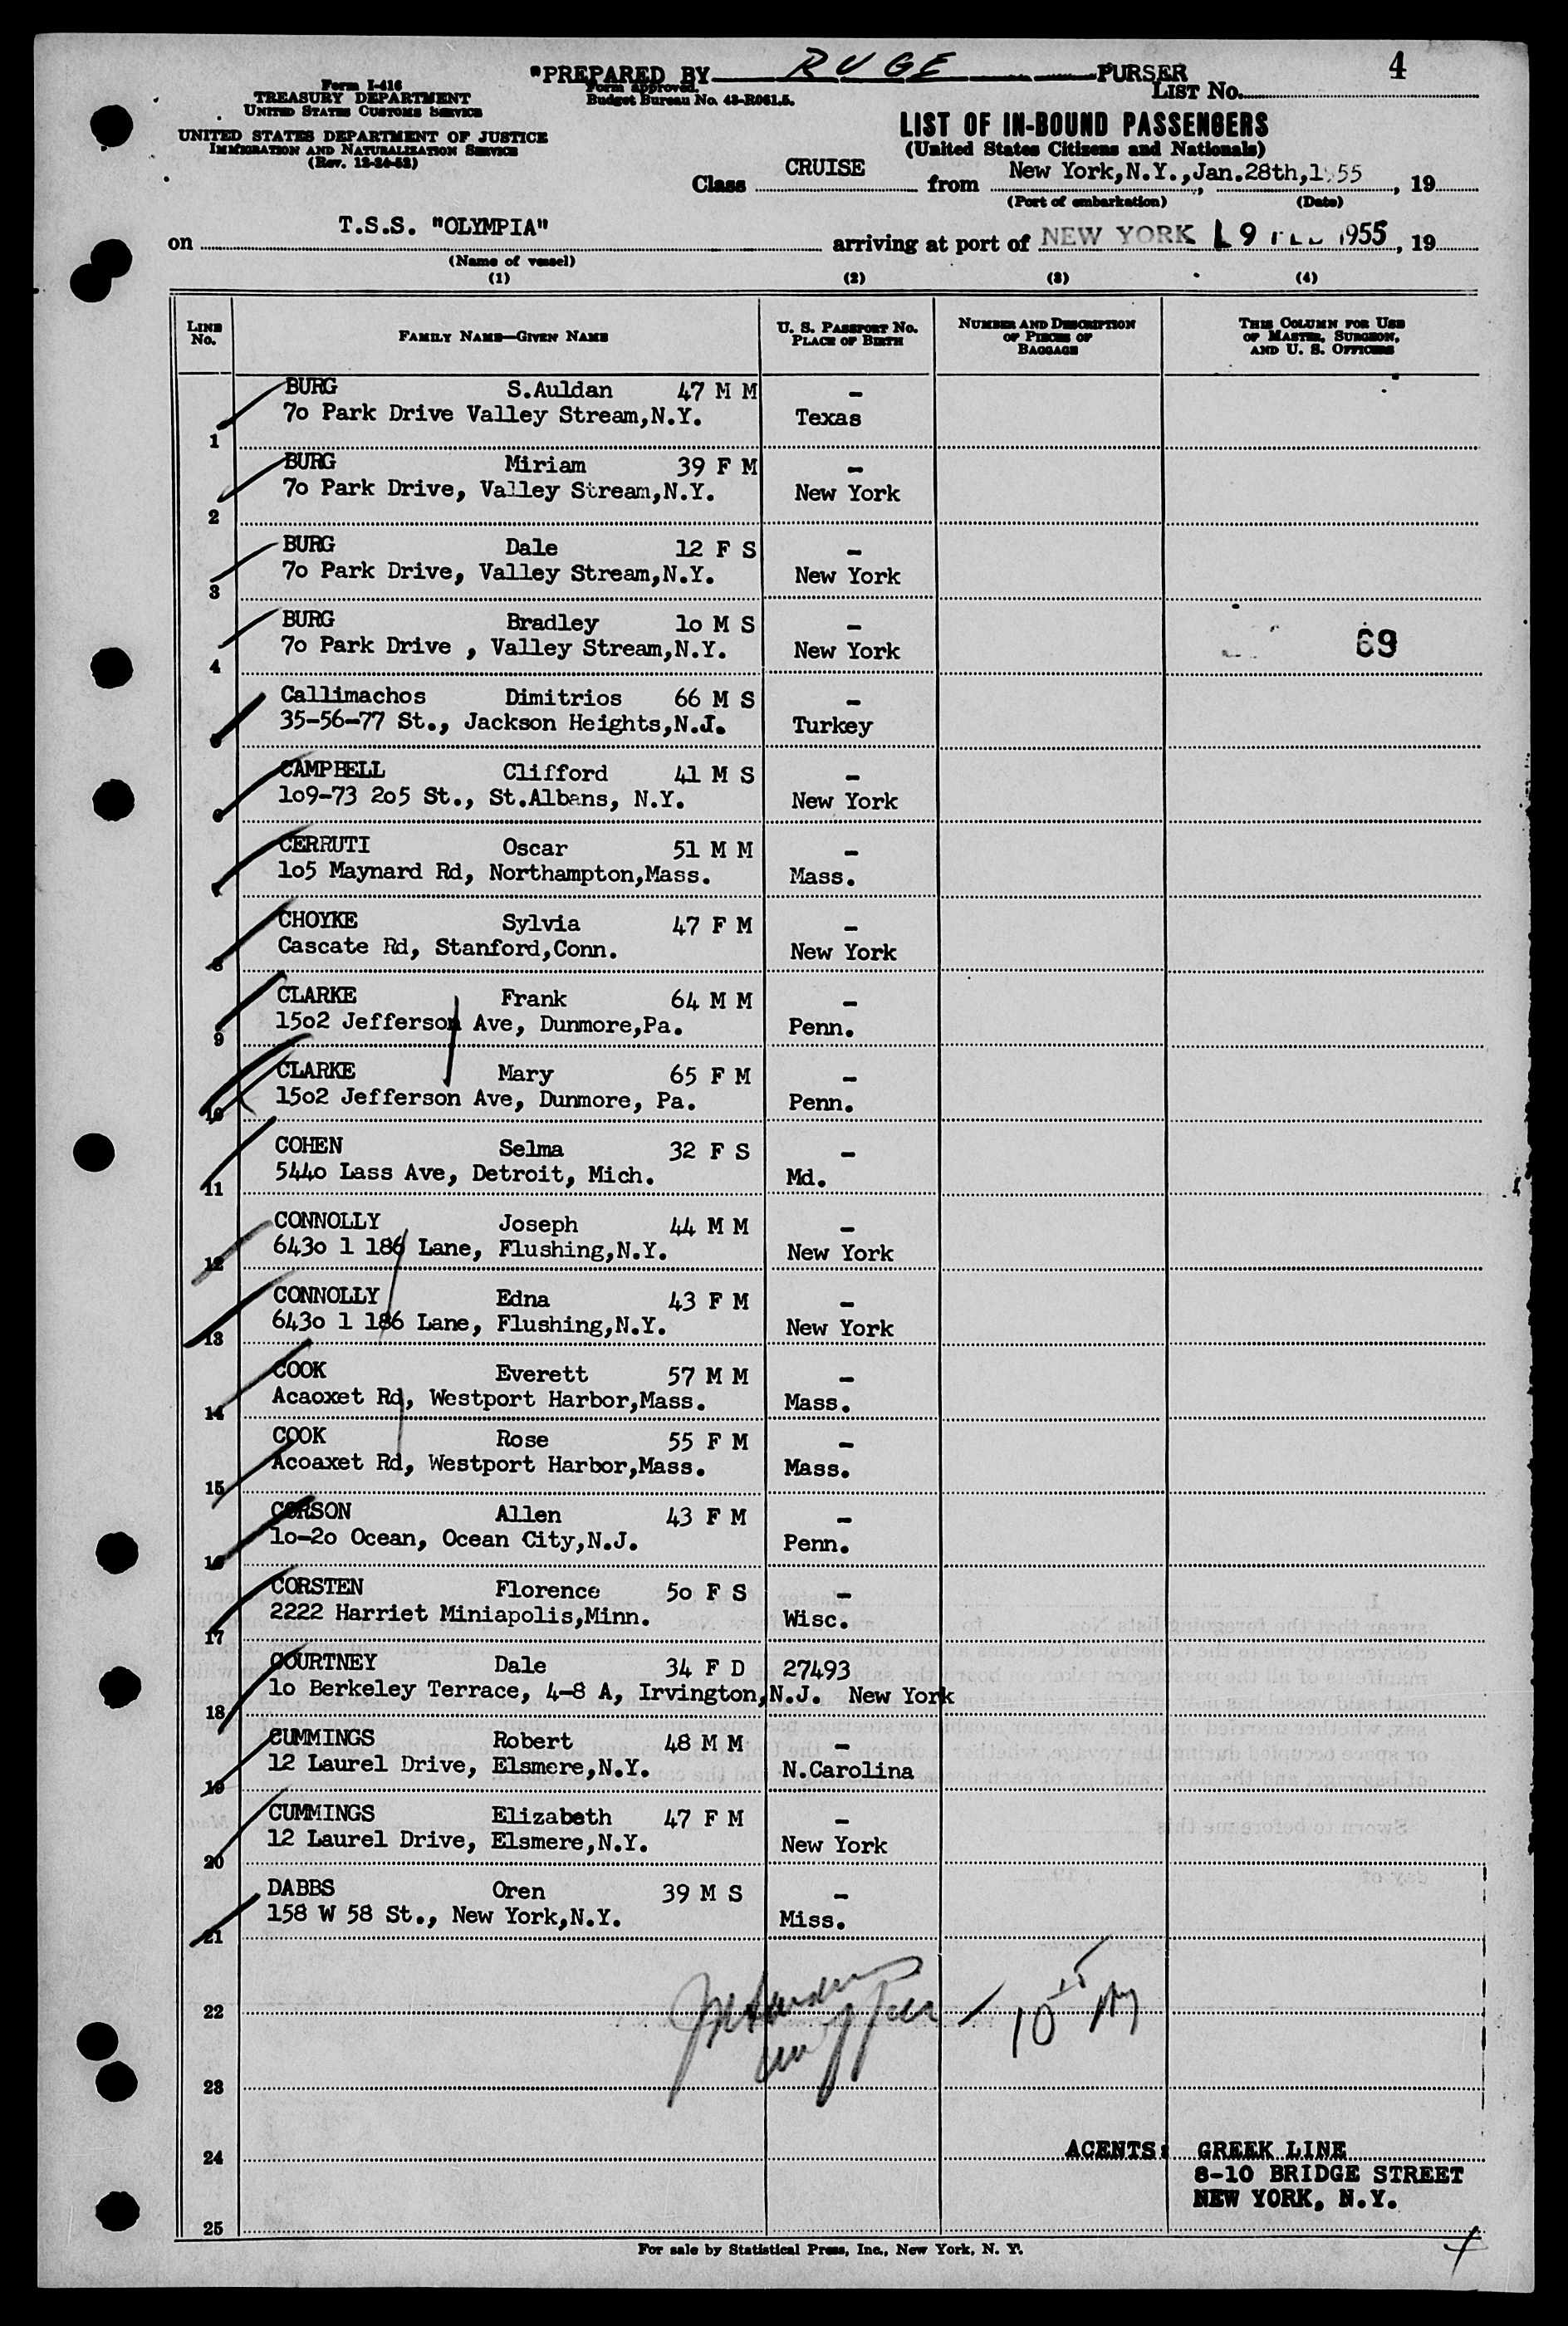 "PREPARED BY RUGE PURSER
4
Form I-416
TREASURY DEPARTMENT
UNITED STATES CUSTOMS SERVICE
UNITED STATES DEPARTMENT OF JUSTICE
IMMIGRATION AND NATURALIZATION SERVICE
(Rev. 12-24-52)
Form approved.
Budget Bureau No. 43-R061.5.
LIST No.
LIST OF IN-BOUND PASSENGERS
(United States Citizens and Nationals)
Class CRUISE from New York,N.Y.,Jan.28th,1955, 19
(Port of embarkation) (Date)
on T.S.S. "OLYMPIA" arriving at port of NEW YORK 9 FEB 1955, 19
(Name of vessel)
(1) (2) (3) (4)
LINE No. FAMILY NAME—GIVEN NAME U. S. PASSPORT No. PLACE OF BIRTH NUMBER AND DESCRIPTION OF PIECES OF BAGGAGE THIS COLUMN FOR USE OF MASTER, SURGEON, AND U. S. OFFICERS
BURG S.Auldan 47 M M -
1 7o Park Drive Valley Stream,N.Y. Texas
BURG Miriam 39 F M -
2 7o Park Drive, Valley Stream,N.Y. New York
BURG Dale 12 F S -
3 7o Park Drive, Valley Stream,N.Y. New York
BURG Bradley 1o M S -
4 7o Park Drive , Valley Stream,N.Y. New York 69
Callimachos Dimitrios 66 M S -
5 35-56-77 St., Jackson Heights,N.J. Turkey
CAMPBELL Clifford 41 M S -
6 1o9-73 2o5 St., St.Albans, N.Y. New York
CERRUTI Oscar 51 M M -
7 1o5 Maynard Rd, Northampton,Mass. Mass.
CHOYKE Sylvia 47 F M -
8 Cascate Rd, Stanford,Conn. New York
CLARKE Frank 64 M M -
9 15o2 Jefferson Ave, Dunmore,Pa. Penn.
CLARKE Mary 65 F M -
10 15o2 Jefferson Ave, Dunmore, Pa. Penn.
COHEN Selma 32 F S -
11 544o Lass Ave, Detroit, Mich. Md.
CONNOLLY Joseph 44 M M -
12 643o l 186 Lane, Flushing,N.Y. New York
CONNOLLY Edna 43 F M -
13 643o l 186 Lane, Flushing,N.Y. New York
COOK Everett 57 M M -
14 Acaoxet Rd, Westport Harbor,Mass. Mass.
COOK Rose 55 F M -
15 Acoaxet Rd, Westport Harbor,Mass. Mass.
CORSON Allen 43 F M -
16 1o-2o Ocean, Ocean City,N.J. Penn.
CORSTEN Florence 5o F S -
17 2222 Harriet Miniapolis,Minn. Wisc.
COURTNEY Dale 34 F D 27493
18 1o Berkeley Terrace, 4-8 A, Irvington,N.J. New York
CUMMINGS Robert 48 M M -
19 12 Laurel Drive, Elsmere,N.Y. N.Carolina
CUMMINGS Elizabeth 47 F M -
20 12 Laurel Drive, Elsmere,N.Y. New York
DABBS Oren 39 M S -
21 158 W 58 St., New York,N.Y. Miss.
22
23
24
25
AGENTS: GREEK LINE
8-10 BRIDGE STREET
NEW YORK, N.Y.
For sale by Statistical Press, Inc., New York, N. Y.